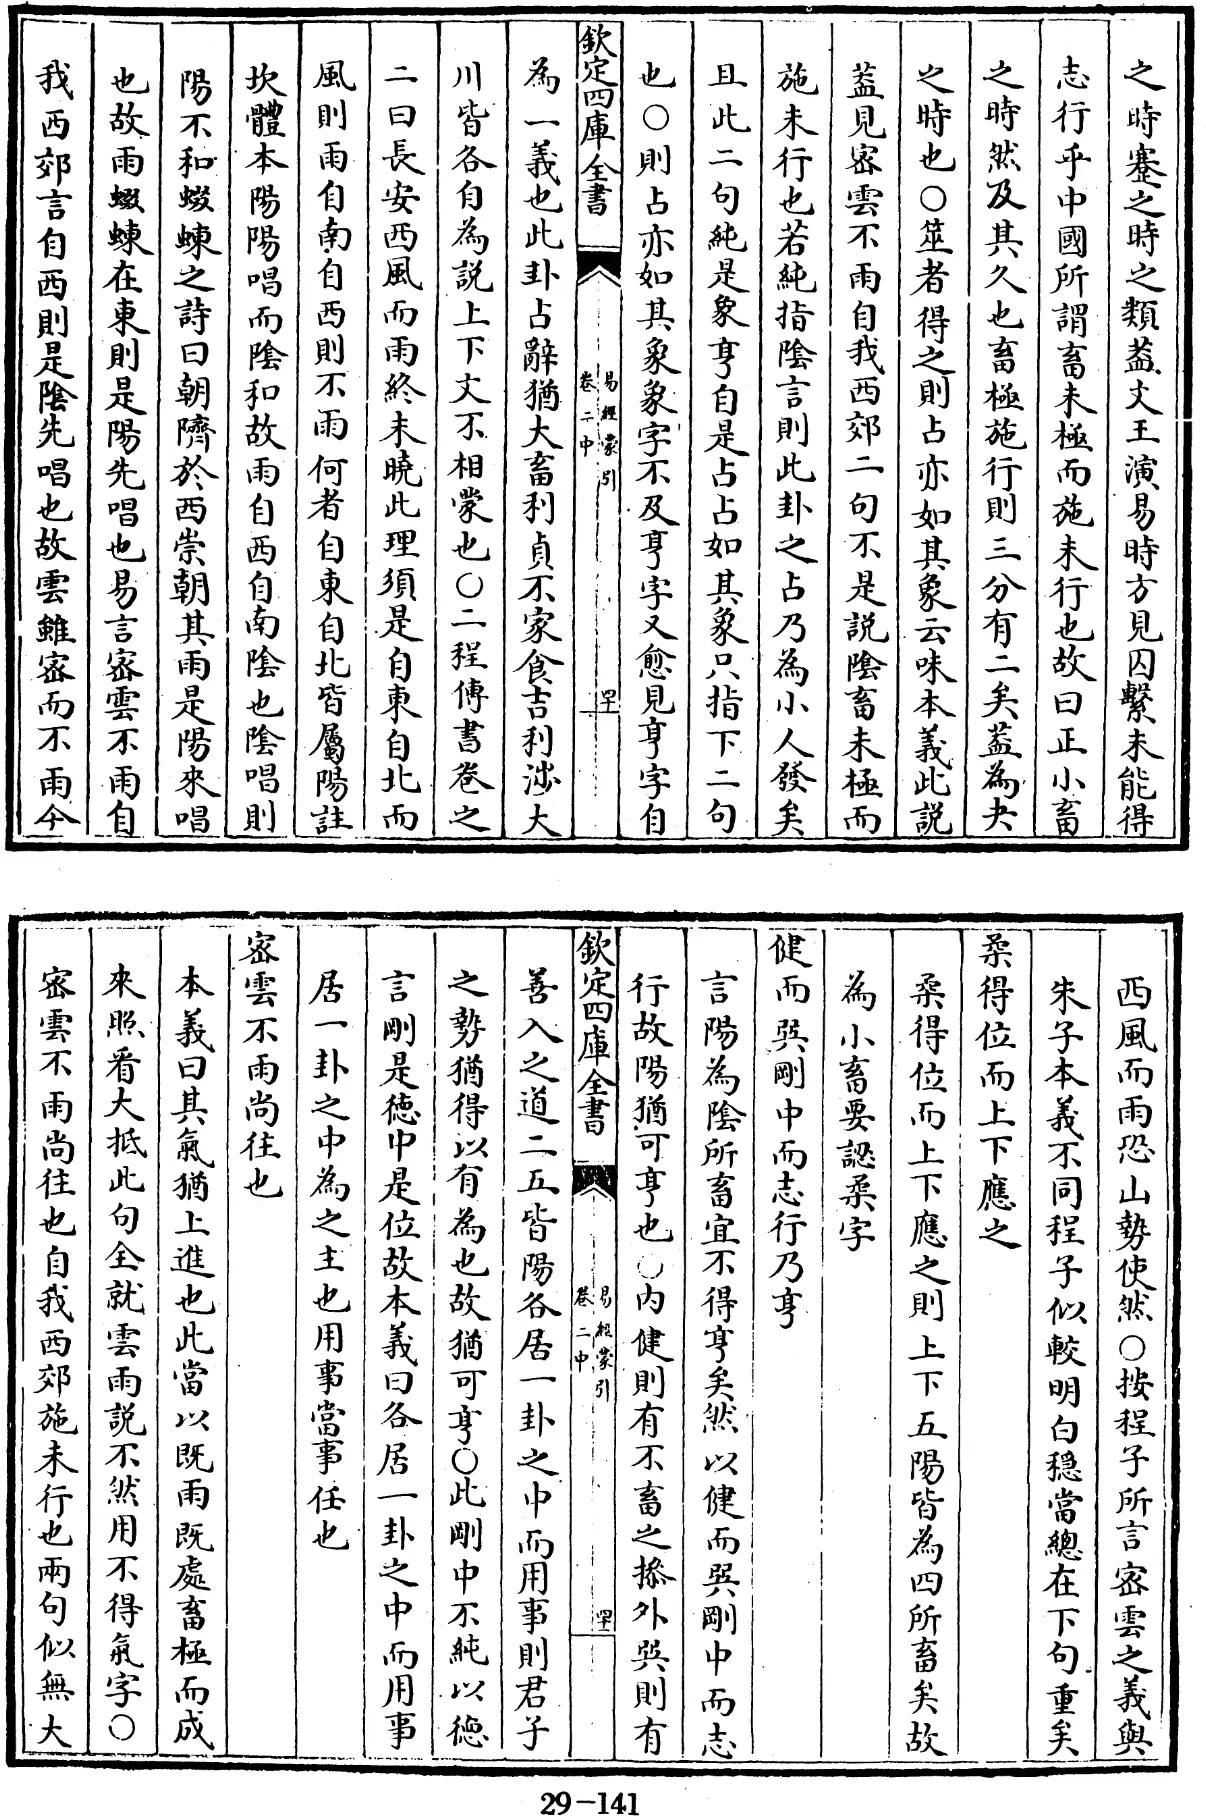 之時蹇之時之類葢文王演易時方見囚繫未能得
志行乎中國所謂畜未極而施未行也故曰正小畜
之時然及其久也畜極施行則三分有二矣葢為夬
之時也○筮者得之則占亦如其象云味本義此說
葢見密雲不雨自我西郊二句不是說陰畜未極而
施未行也若純指陰言則此卦之占乃為小人發矣
且此二句純是象亨自是占占如其象只指下二句
也○則占亦如其象象字不及亨字又愈見亨字自
欽定四庫全書
易經蒙引
卷二中
為一義也此卦占辭猶大畜利貞不家食吉利涉大
川皆各自為說上下文不相蒙也○二程傳書卷之
二曰長安西風而雨終未曉此理須是自東自北而
風則雨自南自西則不雨何者自東自北皆屬陽註
坎體本陽陽唱而陰和故雨自西自南陰也陰唱則
陽不和蝃蝀之詩曰朝隮於西崇朝其雨是陽來唱
也故雨蝃蝀在東則是陽先唱也易言密雲不雨自
我西郊言自西則是陰先唱也故雲雖密而不雨今
西風而雨恐山勢使然○按程子所言密雲之義與
朱子本義不同程子似較明白穩當總在下句重矣
柔得位而上下應之
柔得位而上下應之則上下五陽皆為四所畜矣故
為小畜要認柔字
健而巽剛中而志行乃亨
言陽為陰所畜宜不得亨矣然以健而巽剛中而志
行故陽猶可亨也○內健則有不畜之操外巽則有
欽定四庫全書
易經蒙引
卷二中
善入之道二五皆陽各居一卦之中而用事則君子
之勢猶得以有為也故猶可亨○此剛中不純以德
言剛是德中是位故本義曰各居一卦之中而用事
居一卦之中為之主也用事當事任也
密雲不雨尚往也
本義曰其氣猶上進也此當以既雨既處畜極而成
來照看大抵此句全就雲雨說不然用不得氣字○
密雲不雨尚往也自我西郊施未行也兩句似無大
29-141